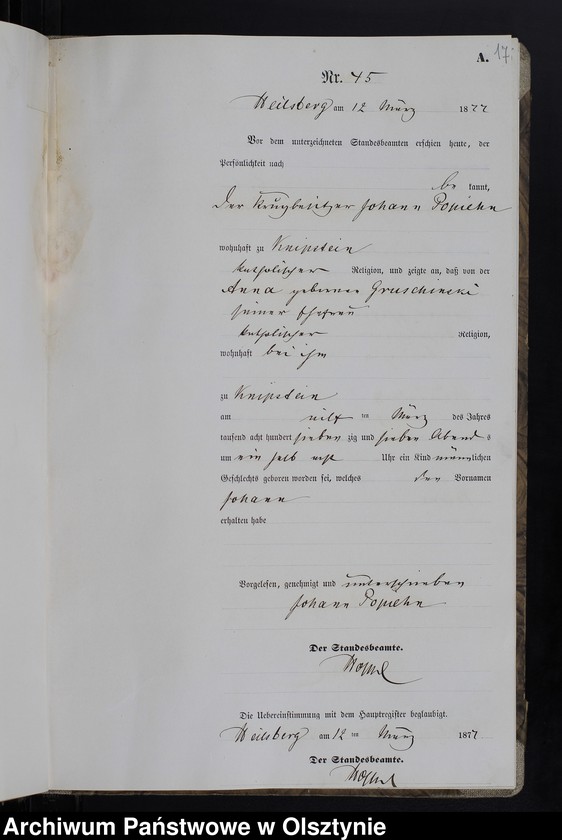 A. 17
Nr. 45
Heilsberg am 12 März 1877
Vor dem unterzeichneten Standesbeamten erschien heute, der
Persönlichkeit nach
be kannt,
der Krugbesitzer Johann Popiehn
wohnhaft zu Knipstein
katholischer Religion, und zeigte an, daß von der
Anna geborenen Gruschinski
seiner Ehefrau
katholischer Religion,
wohnhaft bei ihm
zu Knipstein
am elf ten März des Jahres
tausend acht hundert sieben zig und sieben Abends
um ein halb acht Uhr ein Kind männlichen
Geschlechts geboren worden sei, welches den Vornamen
Johann
erhalten habe
Vorgelesen, genehmigt und unterschrieben
Johann Popiehn
Der Standesbeamte.
Die Uebereinstimmung mit dem Hauptregister beglaubigt.
Heilsberg am 12 ten März 1877
Der Standesbeamte.
Archiwum Państwowe w Olsztynie